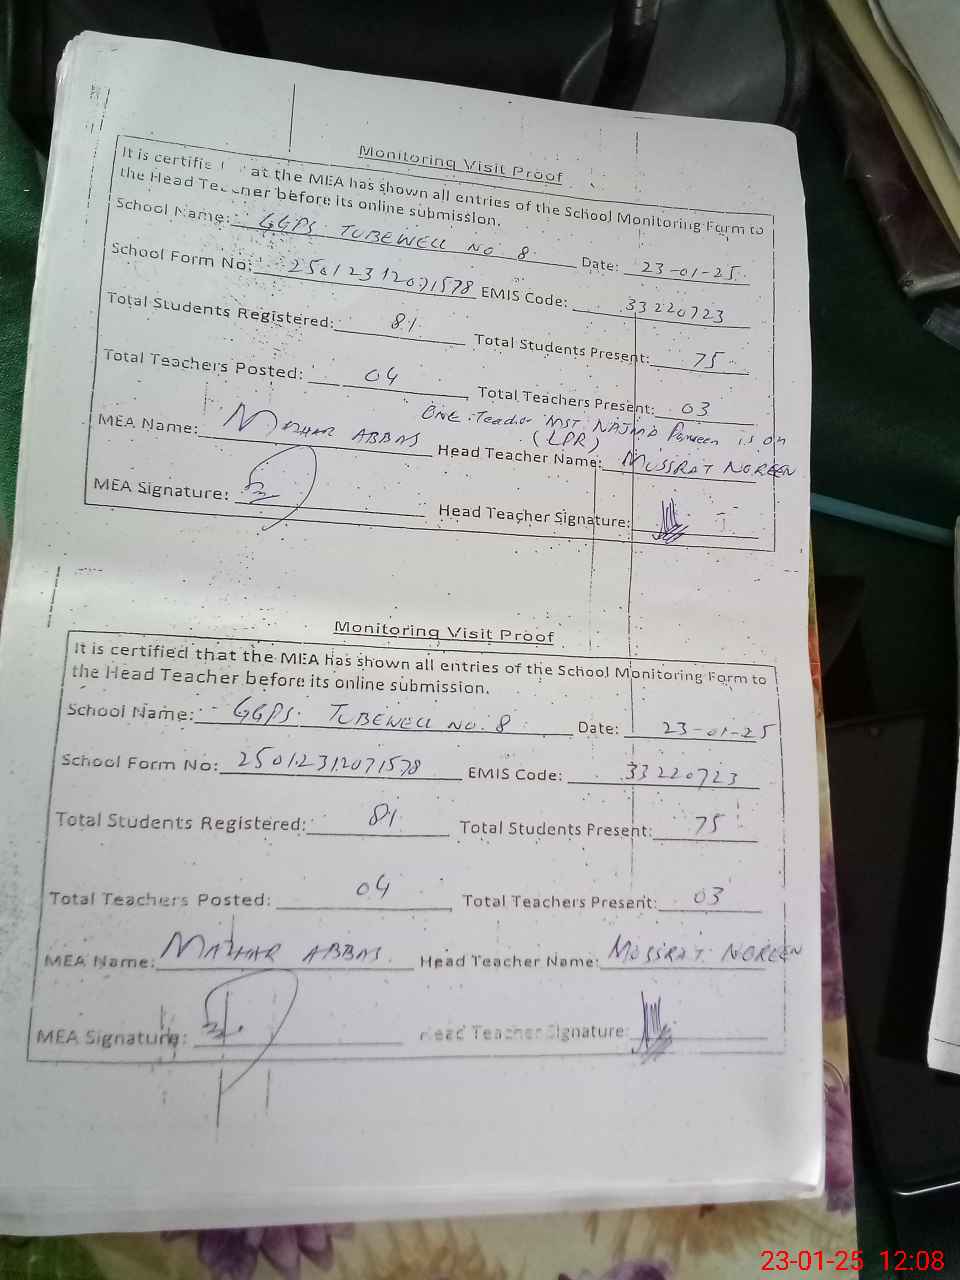 Monitoring Visit Proof
It is certifie at the MEA has shown all entries of the School Monitoring Form to
the Head Teacher before its online submission.
School Name: GGPS. TUBEWELL NO. 8 Date: 23-01-25.
School Form No: 25012312071578 EMIS Code: 33220723
Total Students Registered: 81 Total Students Present: 75
Total Teachers Posted: 04 Total Teachers Present: 03
One Teacher MST. NAJMA Parveen is on
(LPR)
MEA Name: MAZHAR ABBAS Head Teacher Name: MUSSRAT NOREEN
MEA Signature: Head Teacher Signature:
Monitoring Visit Proof
It is certified that the MEA has shown all entries of the School Monitoring Form to
the Head Teacher before its online submission.
School Name: GGPS. TUBEWELL NO. 8 Date: 23-01-25
School Form No: 25012312071578 EMIS Code: 33220723
Total Students Registered: 81 Total Students Present: 75
Total Teachers Posted: 04 Total Teachers Present: 03
MEA Name: MAZHAR ABBAS. Head Teacher Name: MUSSRAT NOREEN
MEA Signature: Head Teacher Signature:
23-01-25 12:08